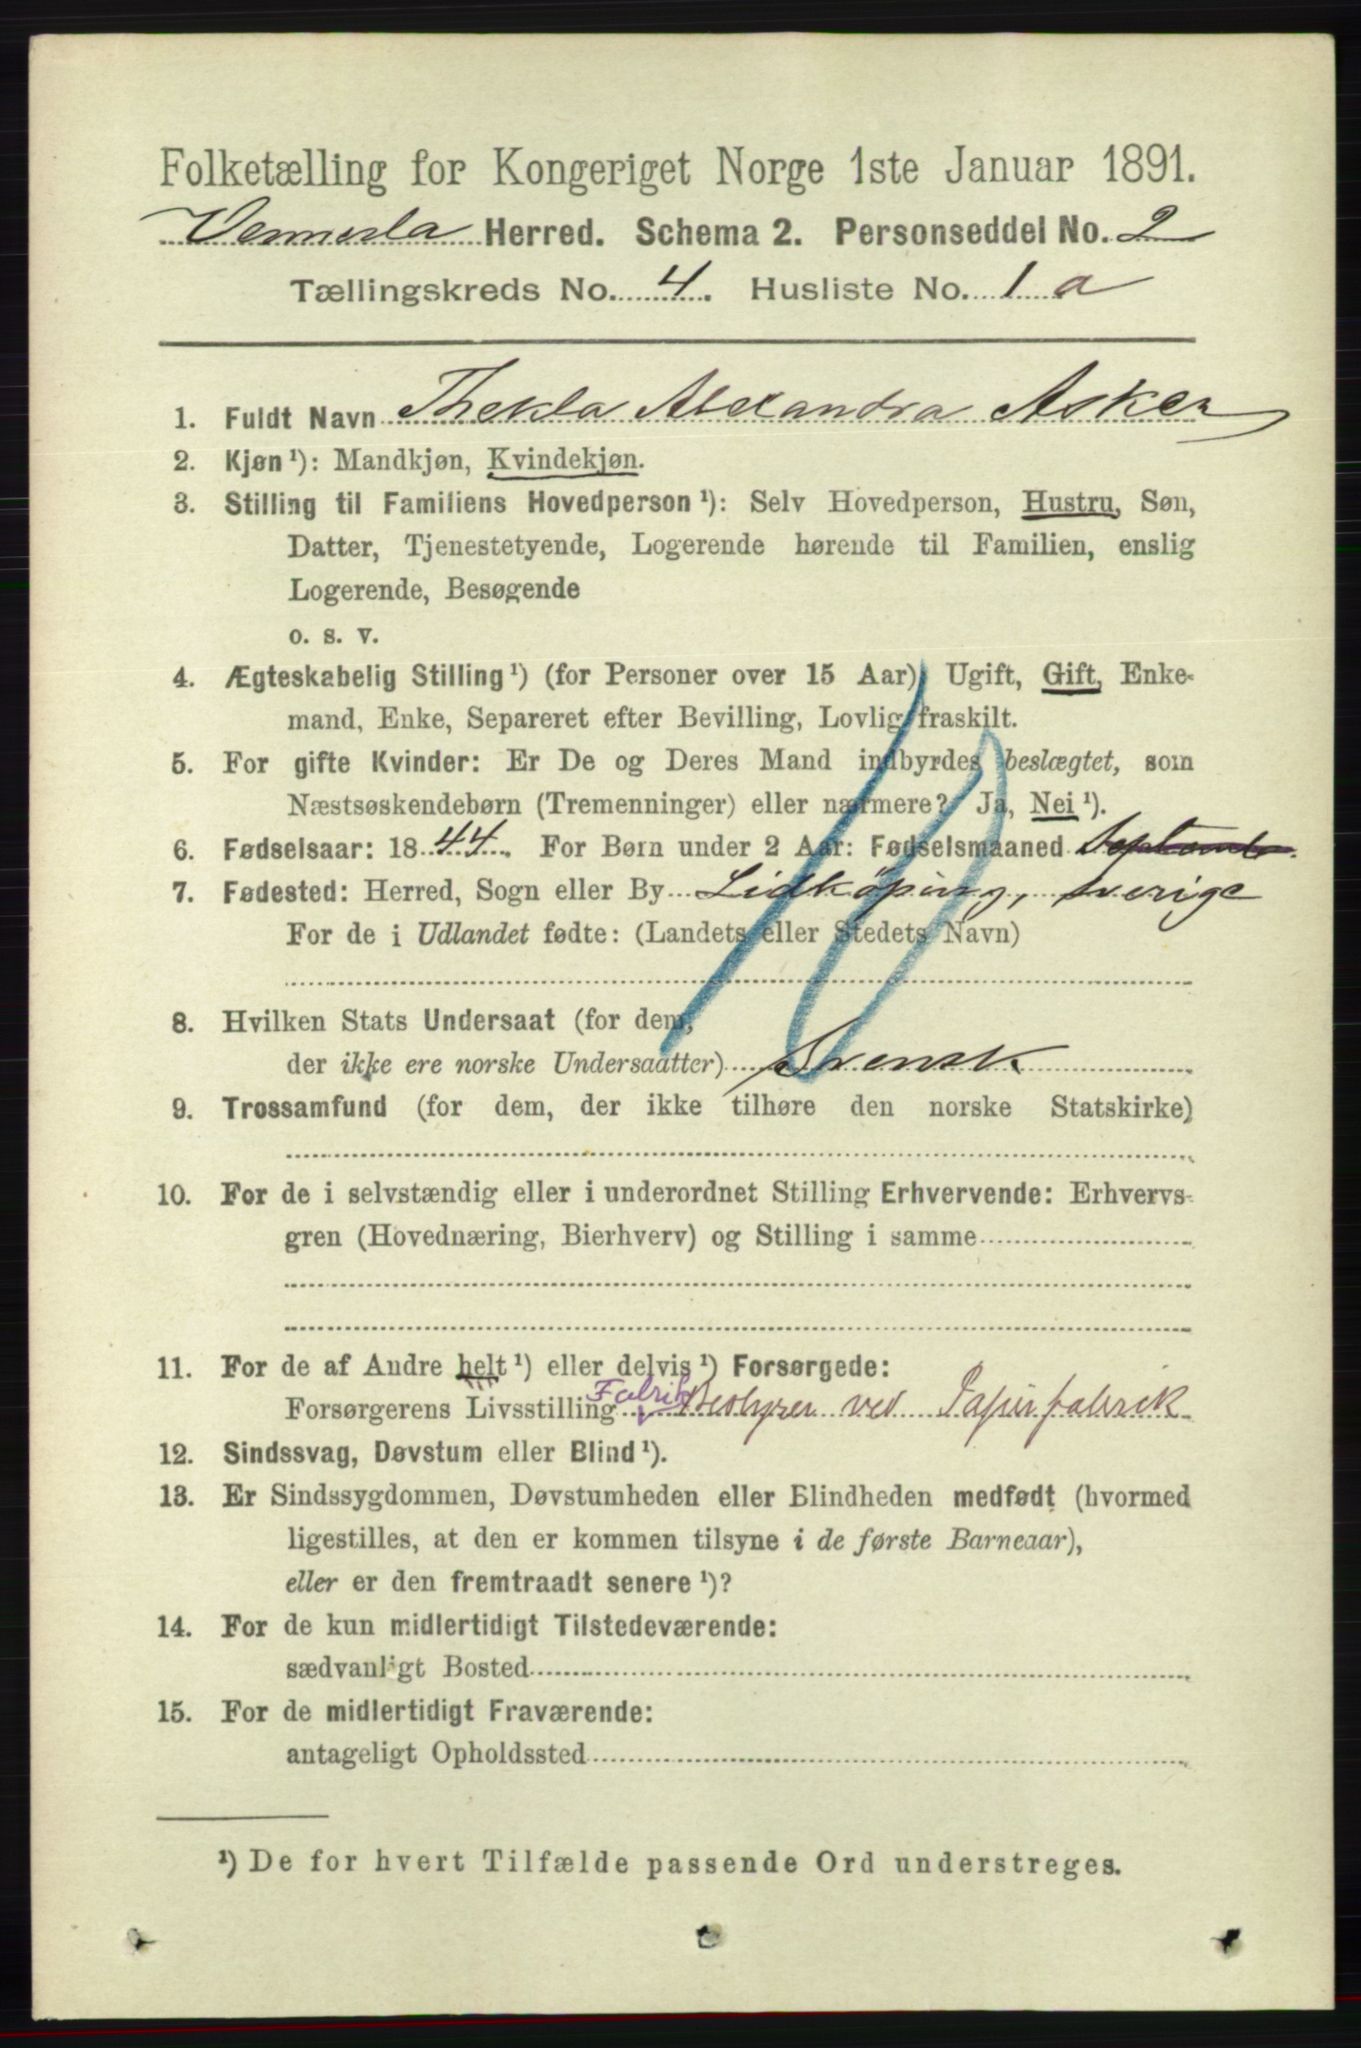 Folketælling for Kongeriget Norge 1ste Januar 1891.
Vennesla Herred. Schema 2. Personseddel No. 2
Tællingskreds No. 4. Husliste No. 1 a
1. Fuldt Navn Thekla Alexandra Asker
2. Kjøn ¹): Mandkjøn, Kvindekjøn.
3. Stilling til Familiens Hovedperson ¹): Selv Hovedperson, Hustru, Søn,
Datter, Tjenestetyende, Logerende hørende til Familien, enslig
Logerende, Besøgende
o. s. v.
4. Ægteskabelig Stilling ¹) (for Personer over 15 Aar) Ugift, Gift, Enke-
mand, Enke, Separeret efter Bevilling, Lovlig fraskilt.
5. For gifte Kvinder: Er De og Deres Mand indbyrdes beslægtet, som
Næstsøskendebørn (Tremenninger) eller nærmere? Ja, Nei ¹).
6. Fødselsaar: 1844. For Børn under 2 Aar: Fødselsmaaned Septemb.
7. Fødested: Herred, Sogn eller By Lidköping, Sverige
For de i Udlandet fødte: (Landets eller Stedets Navn)
10
8. Hvilken Stats Undersaat (for dem,
der ikke ere norske Undersaatter) Svensk
9. Trossamfund (for dem, der ikke tilhøre den norske Statskirke)
10. For de i selvstændig eller i underordnet Stilling Erhvervende: Erhvervs-
gren (Hovednæring, Bierhverv) og Stilling i samme
11. For de af Andre helt ¹) eller delvis ¹) Forsørgede:
Forsørgerens Livsstilling Fabrik Bestyrer ved Papirfabrik
12. Sindssvag, Døvstum eller Blind ¹).
13. Er Sindssygdommen, Døvstumheden eller Blindheden medfødt (hvormed
ligestilles, at den er kommen tilsyne i de første Barneaar),
eller er den fremtraadt senere ¹)?
14. For de kun midlertidigt Tilstedeværende:
sædvanligt Bosted
15. For de midlertidigt Fraværende:
antageligt Opholdssted
¹) De for hvert Tilfælde passende Ord understreges.